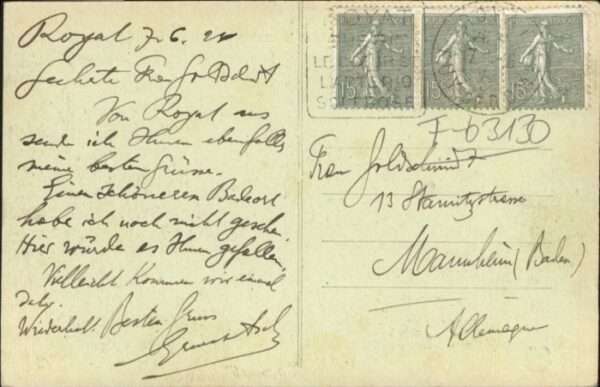 Royat 7.6.
Geehrte Frau
Von Royat aus
sende ich Ihnen ebenfalls
meine besten Grüsse.
Einen schöneren Badeort
habe ich noch nicht gesehen.
Hier würde es Ihnen gefallen.
Vielleicht kommen wir einmal
Wiederholt Besten Gruss
Ernst
15
15
F-63130
Frau Goldschmidt
13
Mannheim (Baden)
Allemagne